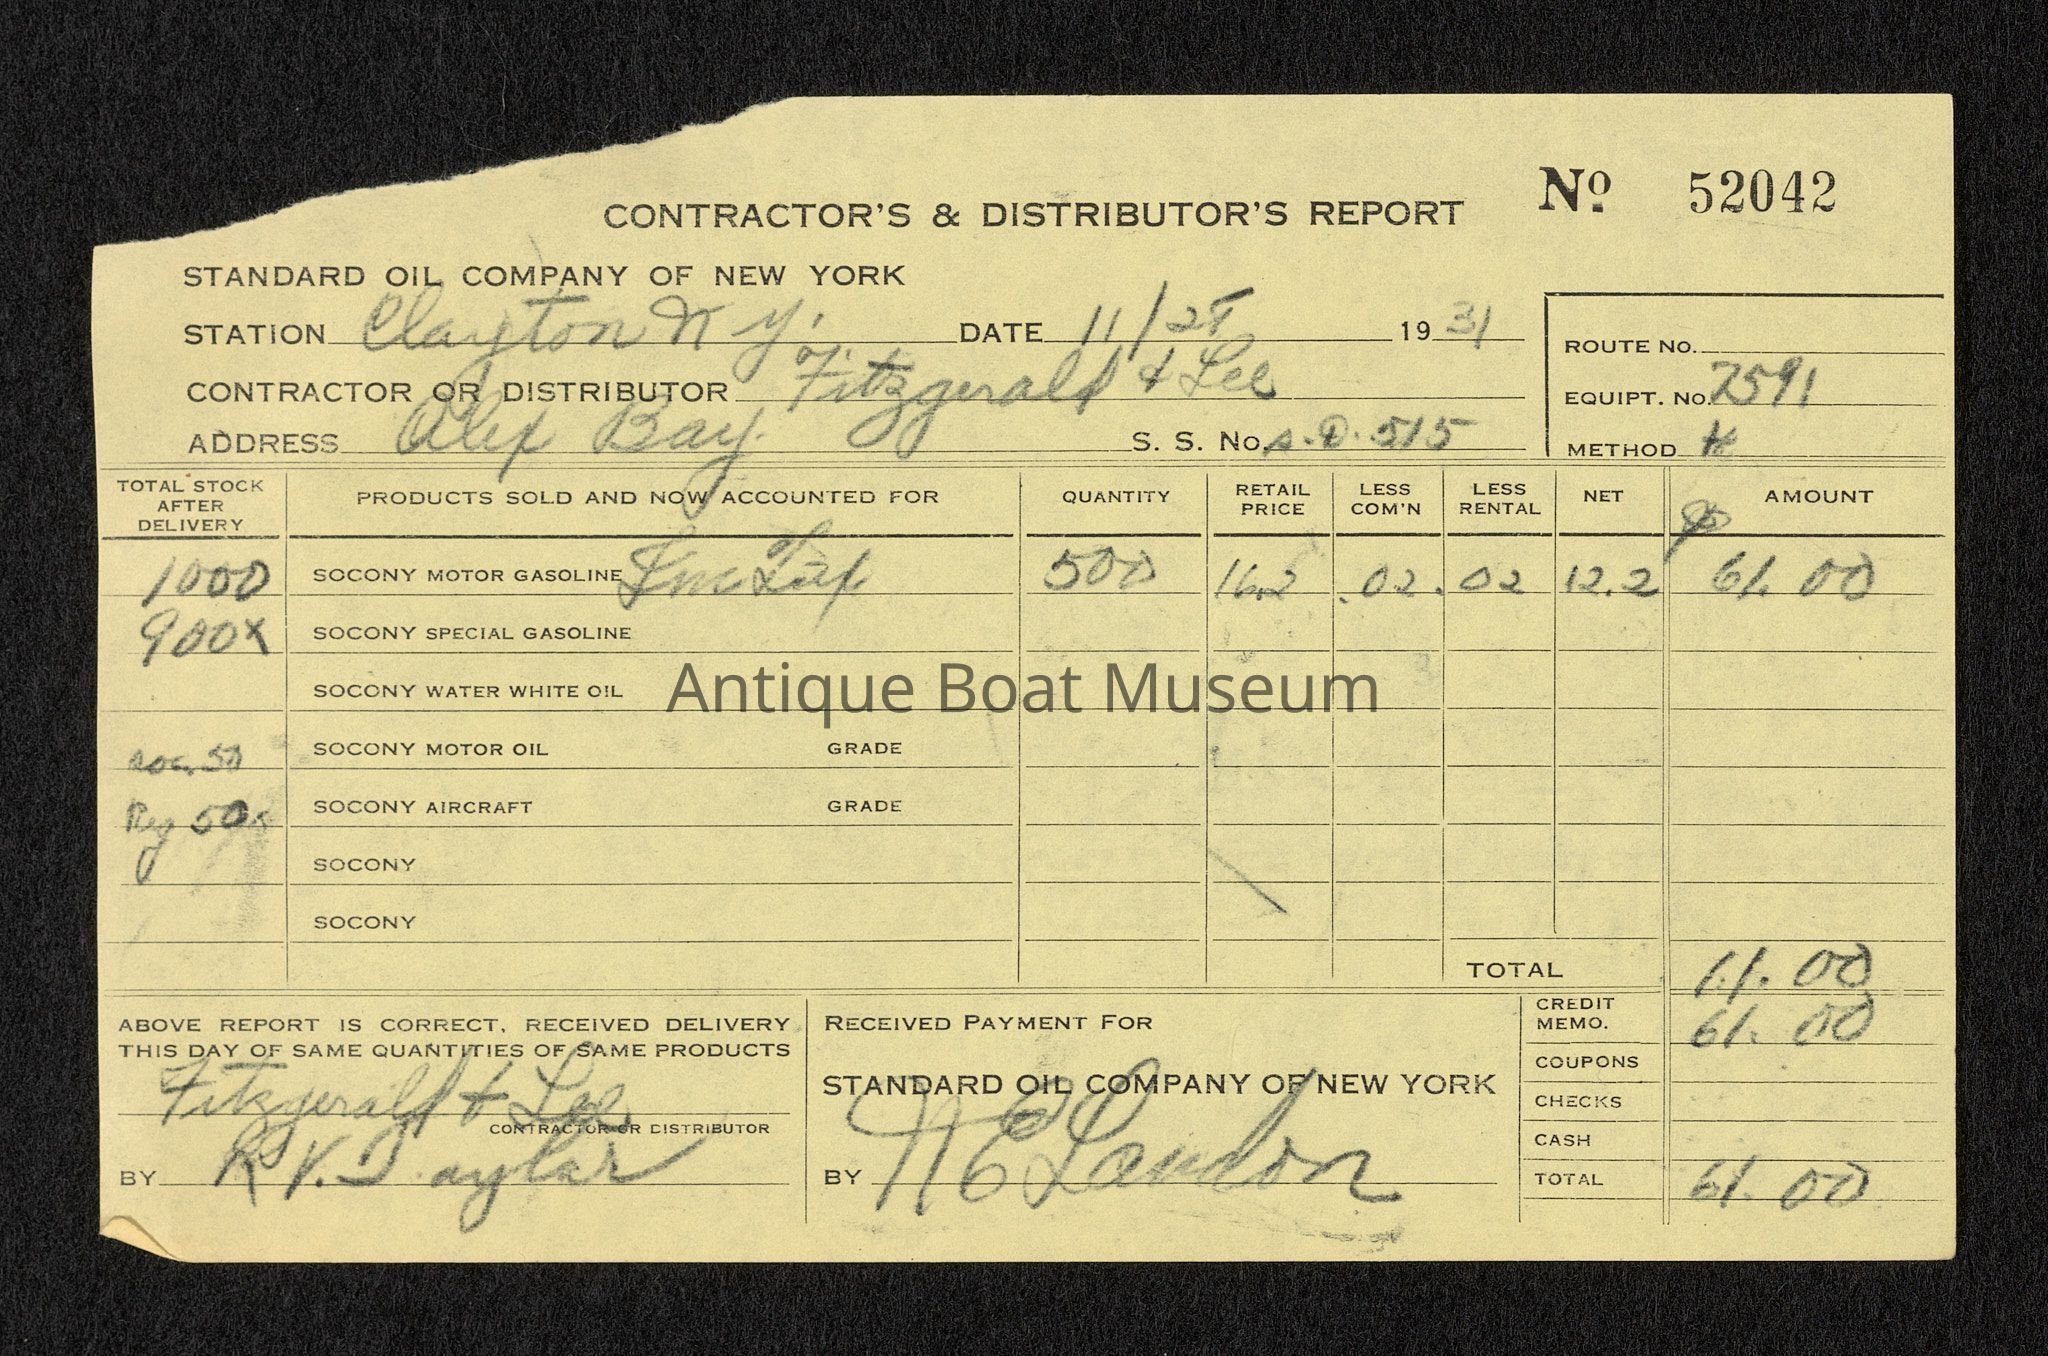 CONTRACTOR'S & DISTRIBUTOR'S REPORT Nº 52042
STANDARD OIL COMPANY OF NEW YORK
STATION Clayton N Y. DATE 11/25 1931
ROUTE NO.
CONTRACTOR OR DISTRIBUTOR Fitzgerald & Lee
EQUIPT. NO. 7591
ADDRESS Alex Bay. S. S. No. S.D. 515
METHOD
TOTAL STOCK AFTER DELIVERY PRODUCTS SOLD AND NOW ACCOUNTED FOR QUANTITY RETAIL PRICE LESS COM'N LESS RENTAL NET AMOUNT
1000 SOCONY MOTOR GASOLINE Inc Tax 500 16.2 .02 .02 12.2 61.00
900x SOCONY SPECIAL GASOLINE
SOCONY WATER WHITE OIL
Antique Boat Museum
50 SOCONY MOTOR OIL GRADE
Reg 50 SOCONY AIRCRAFT GRADE
SOCONY
SOCONY
TOTAL 61.00
ABOVE REPORT IS CORRECT, RECEIVED DELIVERY
THIS DAY OF SAME QUANTITIES OF SAME PRODUCTS
Fitzgerald & Lee
CONTRACTOR OR DISTRIBUTOR
BY R V. Taylor
RECEIVED PAYMENT FOR
STANDARD OIL COMPANY OF NEW YORK
BY Landon
CREDIT MEMO. 61.00
COUPONS
CHECKS
CASH
TOTAL 61.00